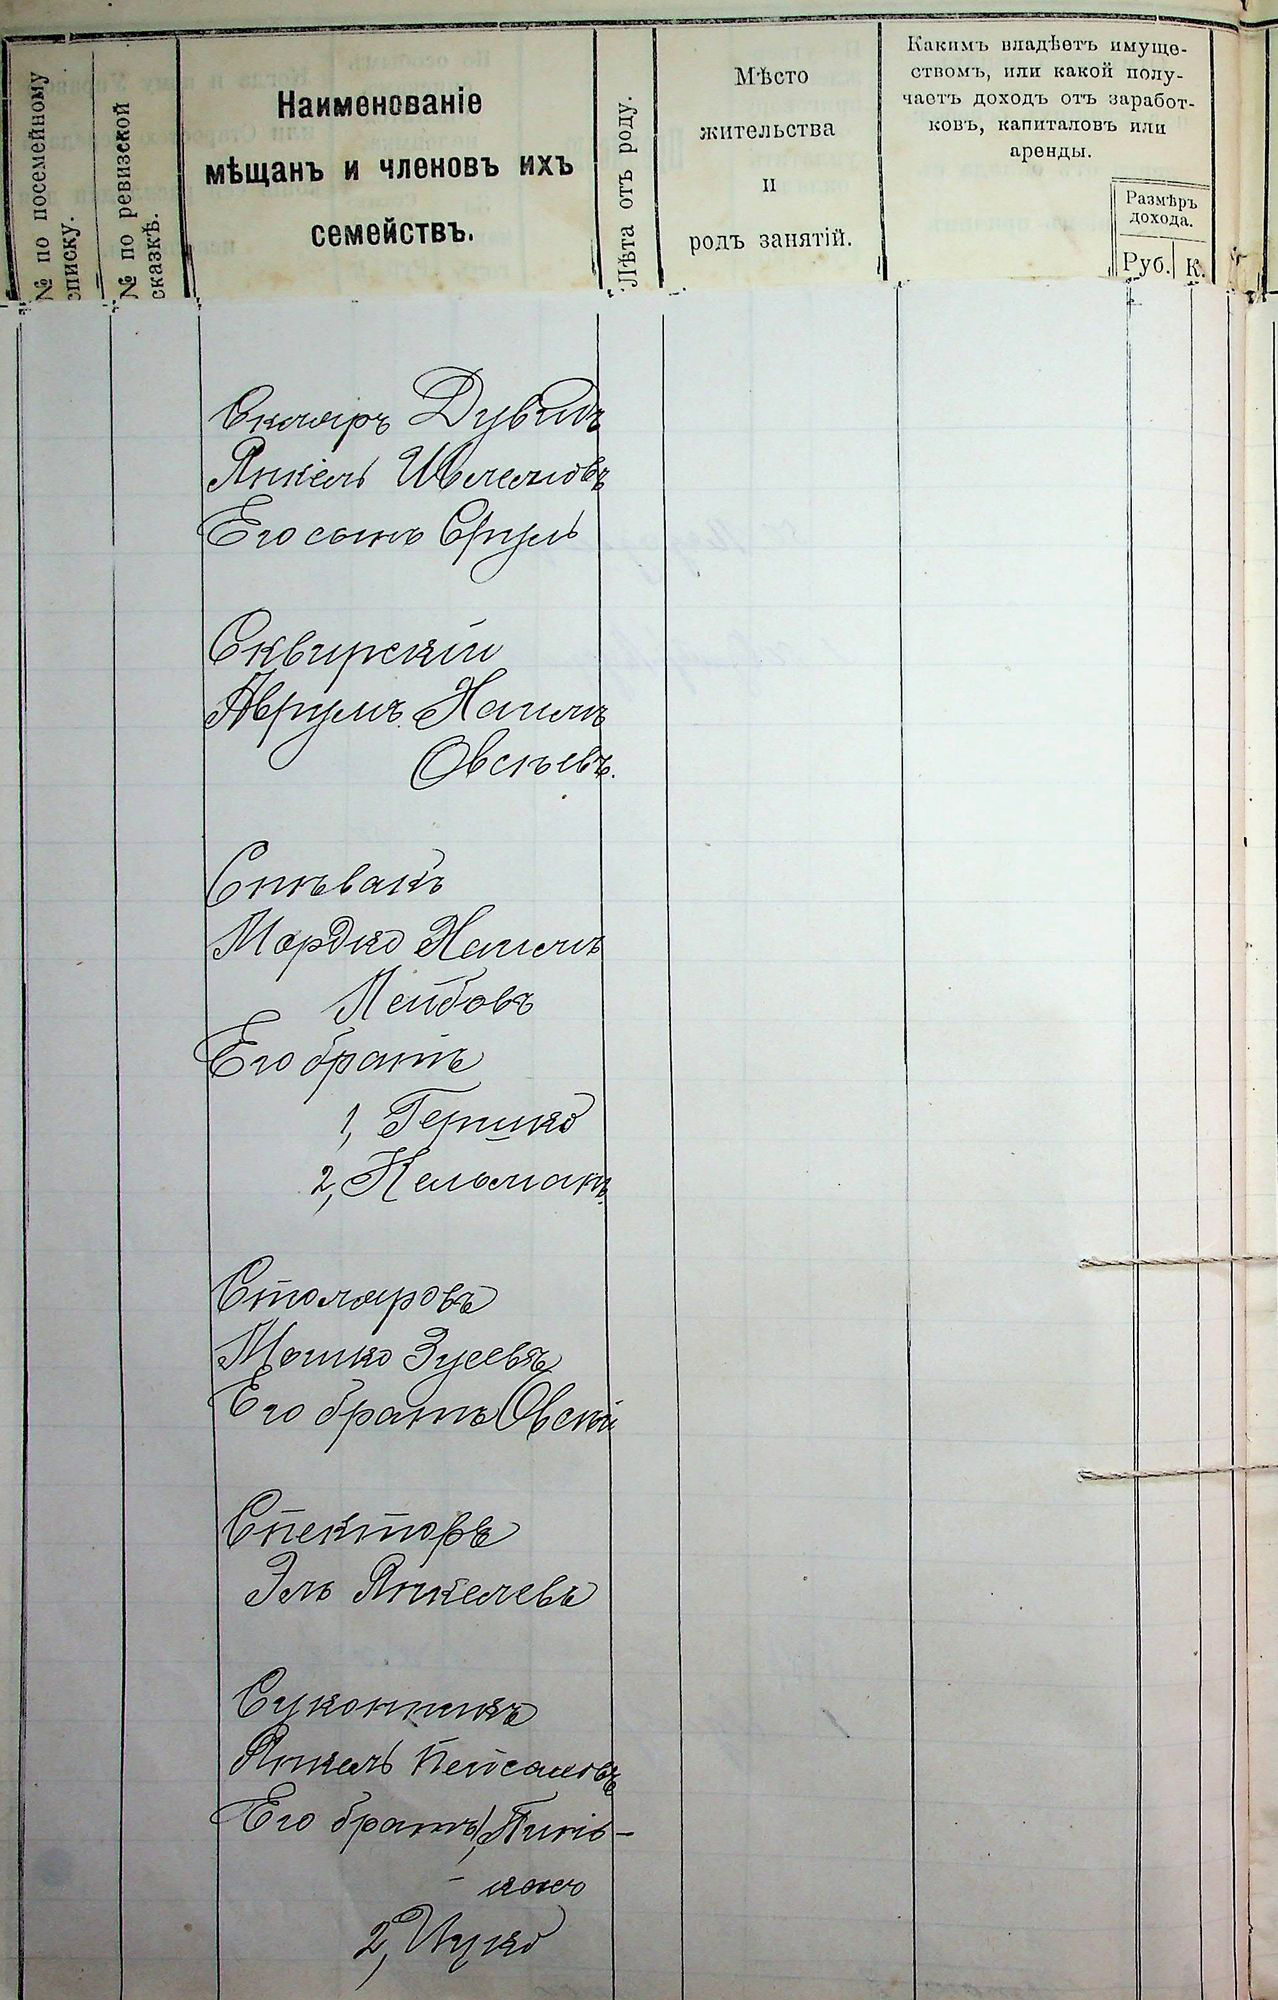 № по посемейному
списку.
№ по ревизской
сказкѣ.
Наименованіе
мѣщанъ и членовъ ихъ
семействъ.
Лѣта отъ роду.
Мѣсто
жительства
и
родъ занятій.
Какимъ владѣетъ имуще-
ствомъ, или какой полу-
чаетъ доходъ отъ заработ-
ковъ, капиталовъ или
аренды.
Размѣръ
дохода.
Руб. К.
Скляръ Дувидъ
Янкель Шлемовъ
Его сынъ Сруль
Сквирскій
Аврумъ Хаимъ
Овсѣевъ.
Спѣвакъ
Мордко Хаимъ
Лейбовъ
Его братъ
1, Гершко
2, Кельманъ
Столяровъ
Мошко Зусевъ
Его братъ Овсѣй
Спекторъ
Эль Янкелевъ
Суконникъ
Янкель Пейсаховъ
Его братъ 1, Пинь-
2, Ицко